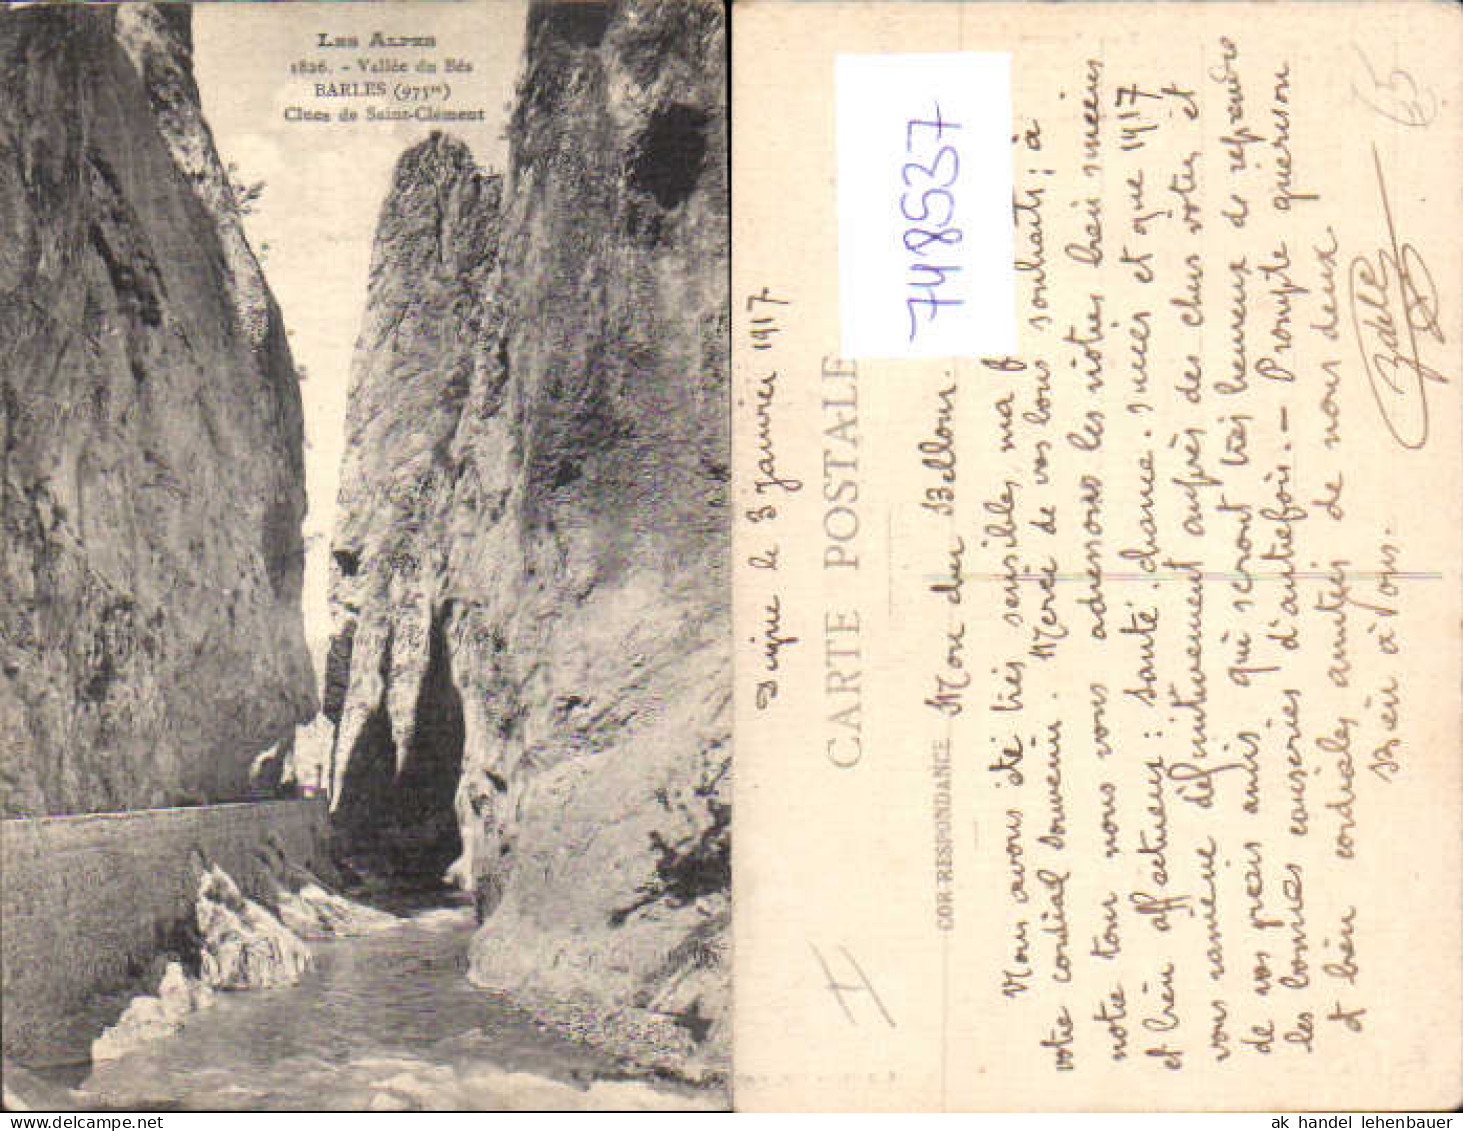 LES ALPES
1826. - Vallée du Bès
BARLES (975m)
Clues de Saint-Clément
748537
65
Digne le 3 janvier 1917
CARTE POSTALE
CORRESPONDANCE
Mon cher Bellour.
Nous avons été très sensibles, ma f
votre cordial souvenir. Merci de vos bons souhaits ; à
notre tour nous vous adressons les nôtres bien sincères
et bien affectueux : santé. chance. succès et que 1917
vous ramène définitivement auprès des chers vôtres et
de vos vrais amis qui seront très heureux de reprendre
les bonnes causeries d'autrefois. — Prompte guérison
et bien cordiales amitiés de nous deux.
Bien à vous.
ak handel lehenbauer